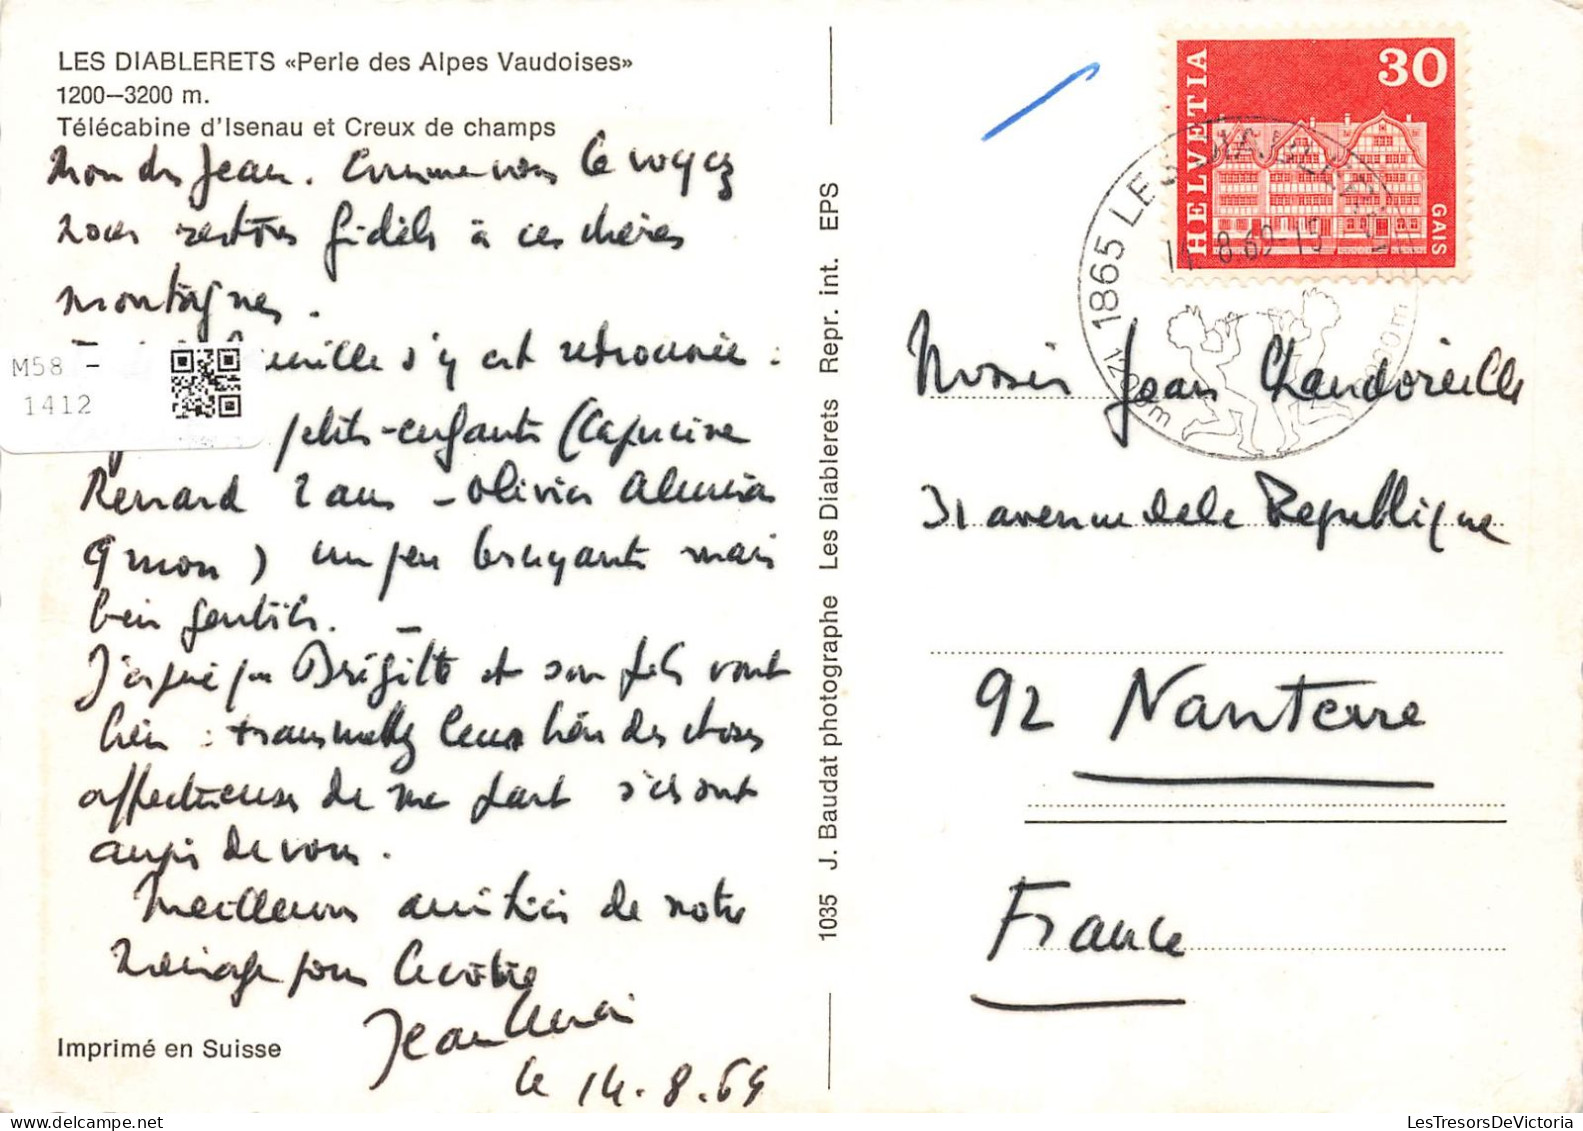 LES DIABLERETS «Perle des Alpes Vaudoises»
1200–3200 m.
Télécabine d'Isenau et Creux de champs
Mon cher Jean. Comme vous le voyez
nous restons fidèles à ces chères
montagnes.
famille s'y est retrouvée :
petits-enfants (Capucine
Renard 2 ans – Olivier
9 mois) un peu bruyants mais
bien gentils. –
J'espère que Brigitte et son fils vont
bien : transmettez leur bien des choses
affectueuses de ma part s'ils sont
auprès de vous.
Meilleures amitiés de notre
ménage pour le vôtre
Jean
le 14.8.69
Imprimé en Suisse
M58 -
1412
1035 J. Baudat photographe Les Diablerets Repr. int. EPS
HELVETIA
30
GAIS
1865 LES DIABLERETS
14.8.69-19
1200m
Monsieur Jean Chandoreille
31 avenue de la République
92 Nanterre
France
LesTresorsDeVictoria.com